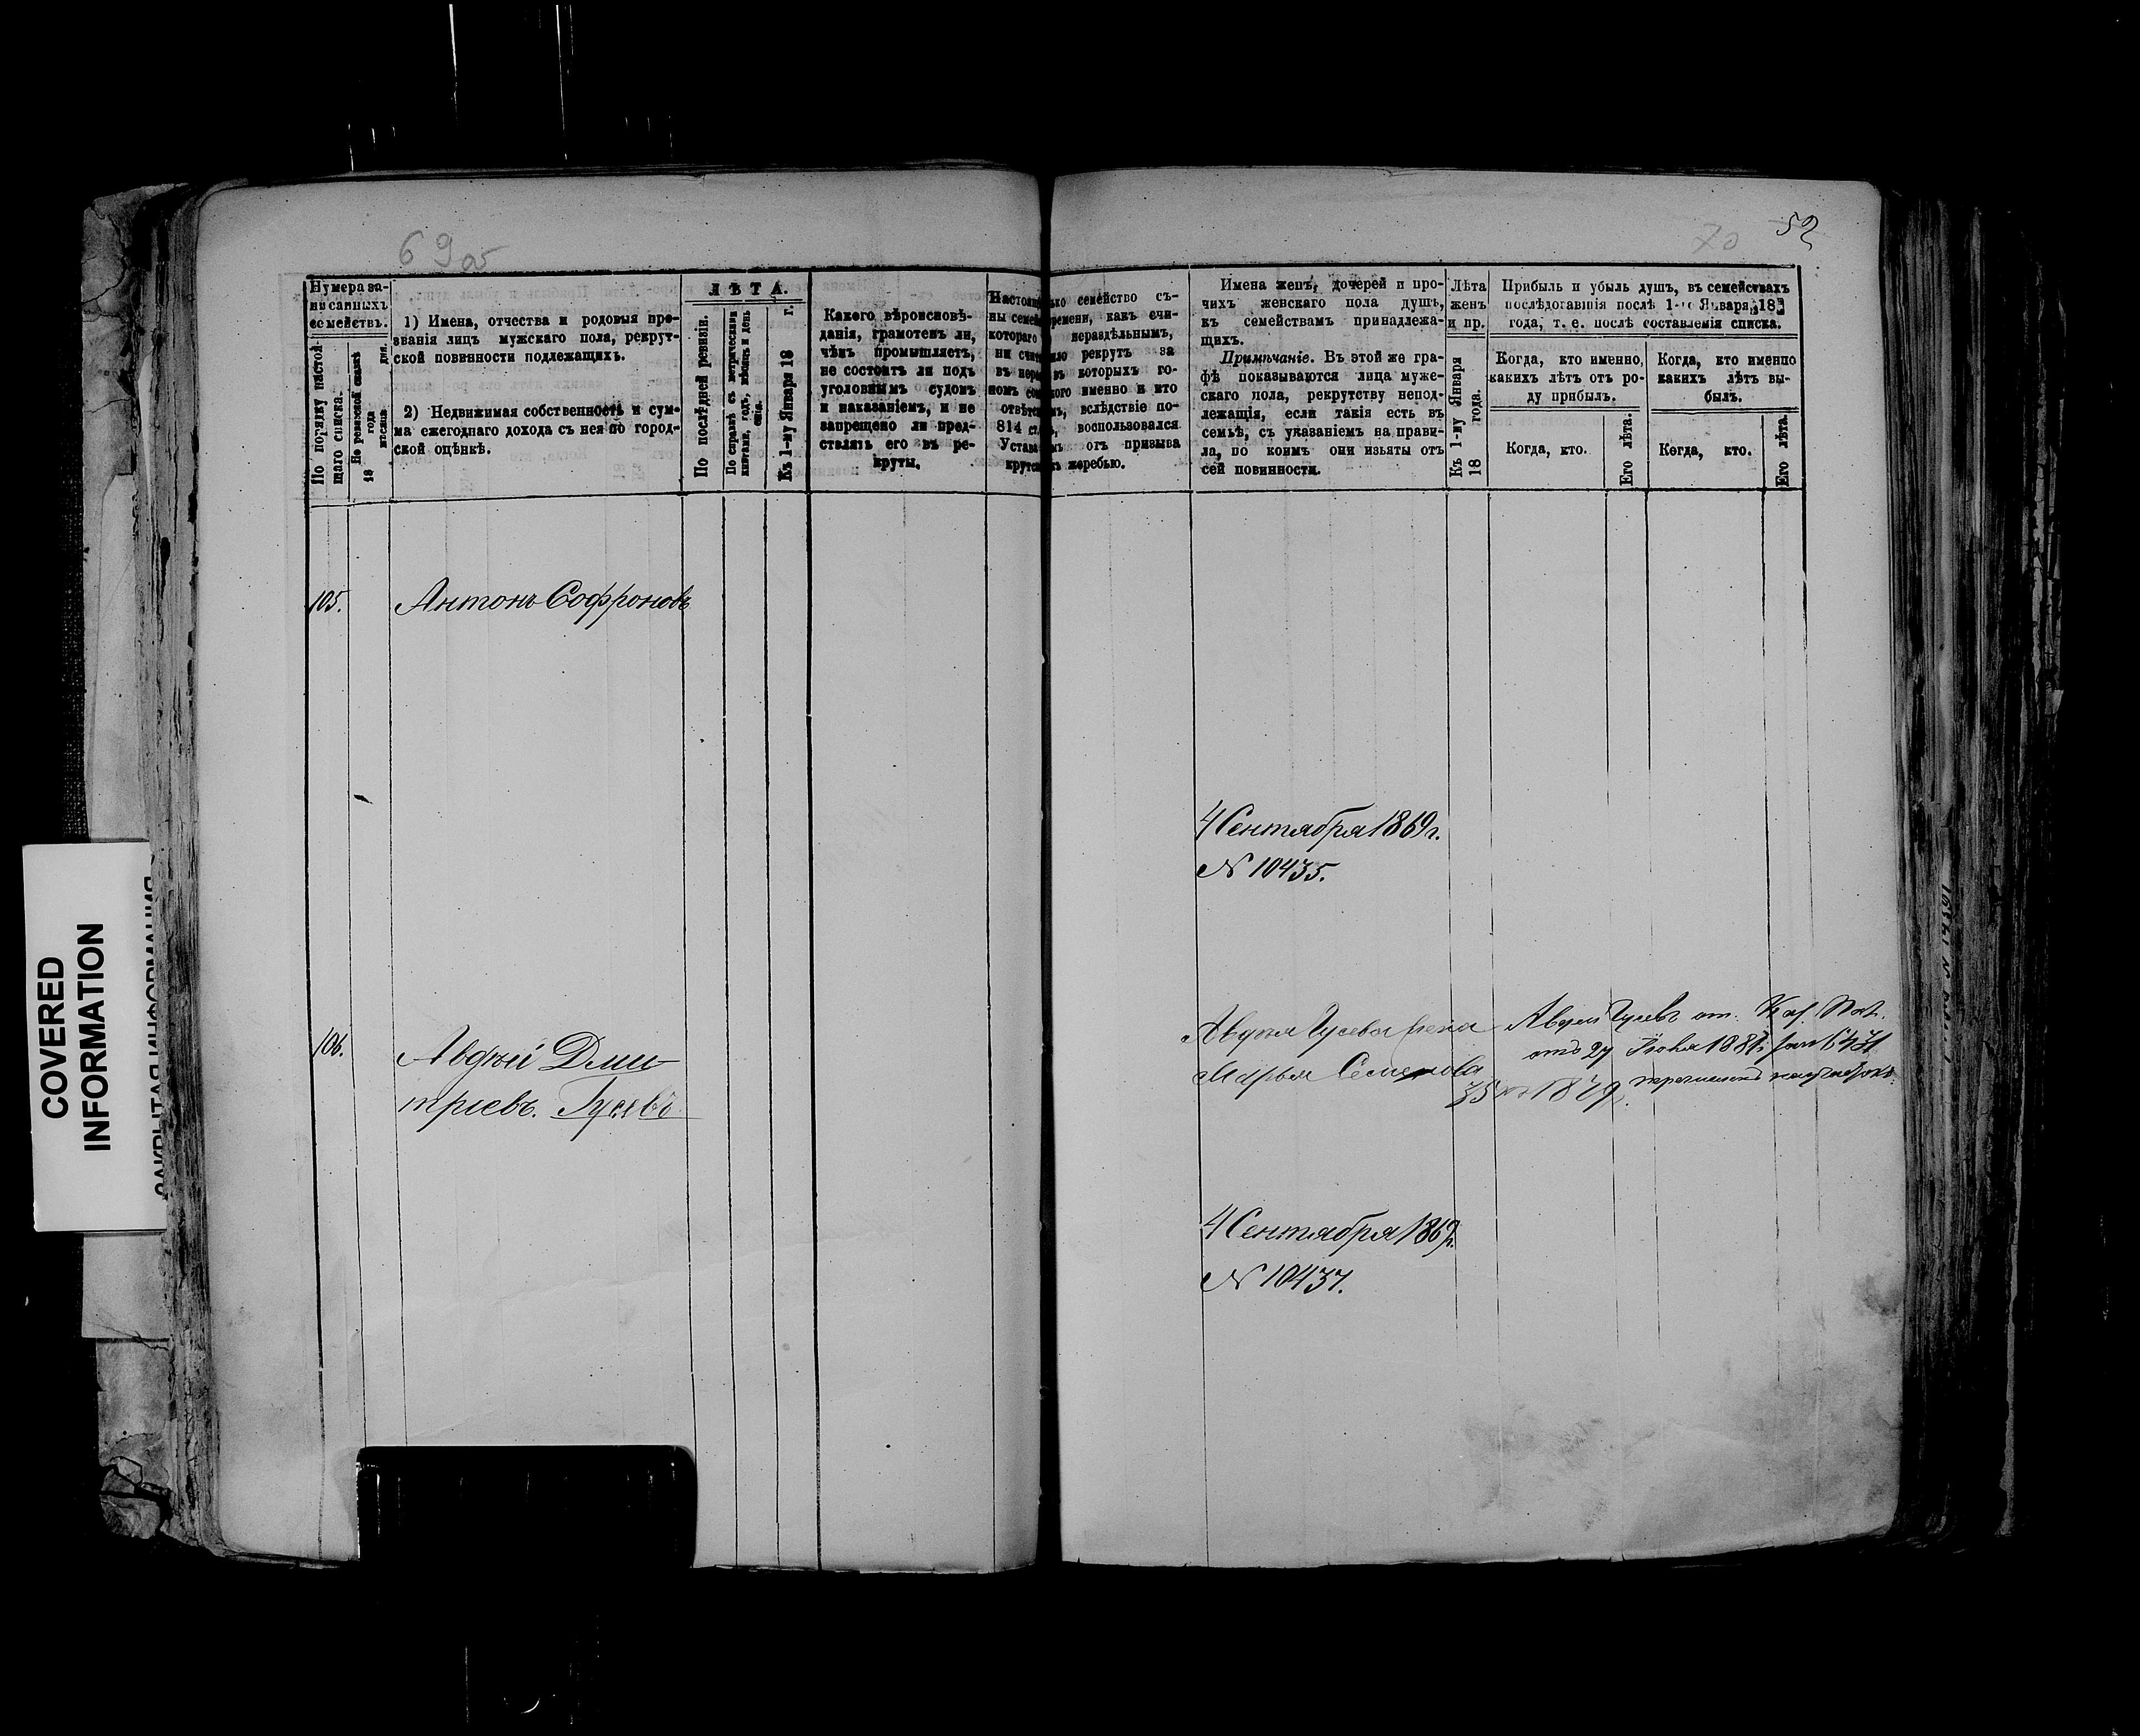 69 об
52
70
Нумера за-
писанныхъ
семействъ.
По порядку настоя-
щаго списка.
По ревизской сказкѣ
18 года
мѣсяца дня.
1) Имена, отчества и родовыя про-
званія лицъ мужскаго пола, рекрут-
ской повинности подлежащихъ.
2) Недвижимая собственность и сум-
ма ежегоднаго дохода съ нея по город-
ской оцѣнкѣ.
ЛѢТА.
По послѣдней ревизіи.
По справкѣ съ метрическими
книгами, годъ, мѣсяцъ и день
Къ 1-му Января 18 г.
Какого вѣроисповѣ-
данія, грамотенъ ли,
чѣмъ промышляетъ,
не состоитъ ли подъ
уголовнымъ судомъ
и наказаніемъ, и не
запрещено ли пред-
ставлять его въ ре-
круты.
семейство съ-
времени, какъ счи-
нераздѣльнымъ,
рекрутъ за
въ которыхъ го-
именно и кто
вслѣдствіе по-
814 воспользовался
Устав отъ призыва
жеребью.
Имена женъ, дочерей и про-
чихъ женскаго пола душъ,
къ семействамъ принадлежа-
щихъ.
Примѣчаніе. Въ этой же гра-
фѣ показываются лица муже-
скаго пола, рекрутству непод-
лежащія, если такія есть въ
семьѣ, съ указаніемъ на прави-
ла, по коимъ они изъяты отъ
сей повинности.
Лѣта
женъ
и пр.
Къ 1-му Января
18 года.
Прибыль и убыль душъ, въ семействахъ
послѣдовавшія послѣ 1-го Января 18
года, т. е. послѣ составленія списка.
Когда, кто именно,
какихъ лѣтъ отъ ро-
ду прибылъ.
Когда, кто.
Его лѣта.
Когда, кто именно
какихъ лѣтъ вы-
былъ.
Когда, кто.
Его лѣта.
105.
Антонъ Софроновъ
4 Сентября 1869 г.
N 10435.
106.
Авдѣй Дми-
тріевъ. Гусевъ
Авдѣя Гусева жена
Марья Семенова
35 1879
Авдей Гусевъ от. Каз. Пал.
отъ 27 Іюня 1881 г. за N 6431
перечисленъ
4 Сентября 1869 г.
N 10437.
COVERED
INFORMATION
ЗАКРЫТАЯ ИНФОРМАЦИЯ